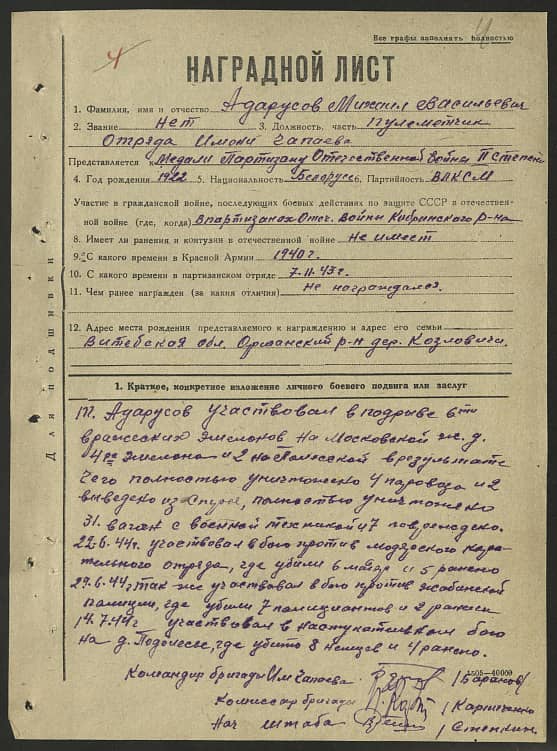 Все графы заполнять полностью
4
НАГРАДНОЙ ЛИСТ
1. Фамилия, имя и отчество Адарусов Михаил Васильевич
2. Звание Нет 3. Должность, часть Пулеметчик
Отряда Имени Чапаева
Представляется к Медали Партизану Отечественной войны II степени
4. Год рождения 1922 5. Национальность Белорус 6. Партийность ВЛКСМ
Участие в гражданской войне, последующих боевых действиях по защите СССР в отечествен-
ной войне (где, когда) В партизанах Отеч. войны Кобринского р-на
8. Имеет ли ранения и контузии в отечественной войне не имеет
9. С какого времени в Красной Армии 1940 г.
10. С какого времени в партизанском отряде 7.11.43 г.
11. Чем ранее награжден (за какия отличия) Не награждался.
12. Адрес места рождения представляемого к награждению и адрес его семьи
Витебская обл. Оршанский р-н дер. Козловичи.
Для подшивки
1. Краткое, конкретное изложение личного боевого подвига или заслуг
Т. Адарусов участвовал в подрыве 6ти
вражеских эшелонов на Московской ж. д.
4ре эшелона и 2 на Полесской в результате
чего полностью уничтожено 4 паровоза и 2
выведено из строя, полностью уничтожено
31. вагон с военной техникой и 7 повреждено.
22.6.44г. участвовал в бою против мадярского кара-
тельного отряда, где убили 6 мадяр и 5 ранено
29.6.44г так же участвовал в бою против жабинской
полиции, где убили 7 полициантов и 2 ранили
14.7.44г участвовал в наступательном бою
на д. где убито 8 немцев и 4 ранено.
Командир бригады Им. Чапаева /Баранов/
Комиссар бригады /Карпиченко
Нач штаба /Степкин
5505-40000